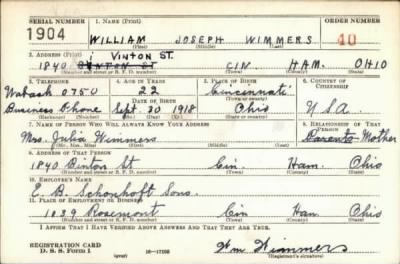 SERIAL NUMBER 1. NAME (Print) ORDER NUMBER
1904 WILLIAM JOSEPH WIMMERS 40
(First) (Middle) (Last)
2. ADDRESS (Print) VINTON ST.
1840 BINTON ST CIN, HAM. OHIO
(Number and street or R. F. D. number) (Town) (County) (State)
3. TELEPHONE 4. AGE IN YEARS 5. PLACE OF BIRTH 6. COUNTRY OF CITIZENSHIP
Wabash 0750 22 Cincinnati
DATE OF BIRTH (Town or county)
Business Phone Sept. 20 1918 Ohio USA
(Mo.) (Day) (Yr.) (State or country)
7. NAME OF PERSON WHO WILL ALWAYS KNOW YOUR ADDRESS 8. RELATIONSHIP OF THAT PERSON
Mrs. Julia Wimmers Parents Mother
(Mr., Mrs., Miss) (First) (Middle) (Last)
9. ADDRESS OF THAT PERSON
1840 Binton St Cin Ham. Ohio
(Number and street or R. F. D. number) (Town) (County) (State)
10. EMPLOYER'S NAME
E. B. Schonhoft Sons.
11. PLACE OF EMPLOYMENT OR BUSINESS
1039 Rosemont Cin Ham. Ohio
(Number and street or R. F. D. number) (Town) (County) (State)
I AFFIRM THAT I HAVE VERIFIED ABOVE ANSWERS AND THAT THEY ARE TRUE.
REGISTRATION CARD
D. S. S. Form 1 (over) 16—17105 Wm Wimmers
(Registrant's signature)